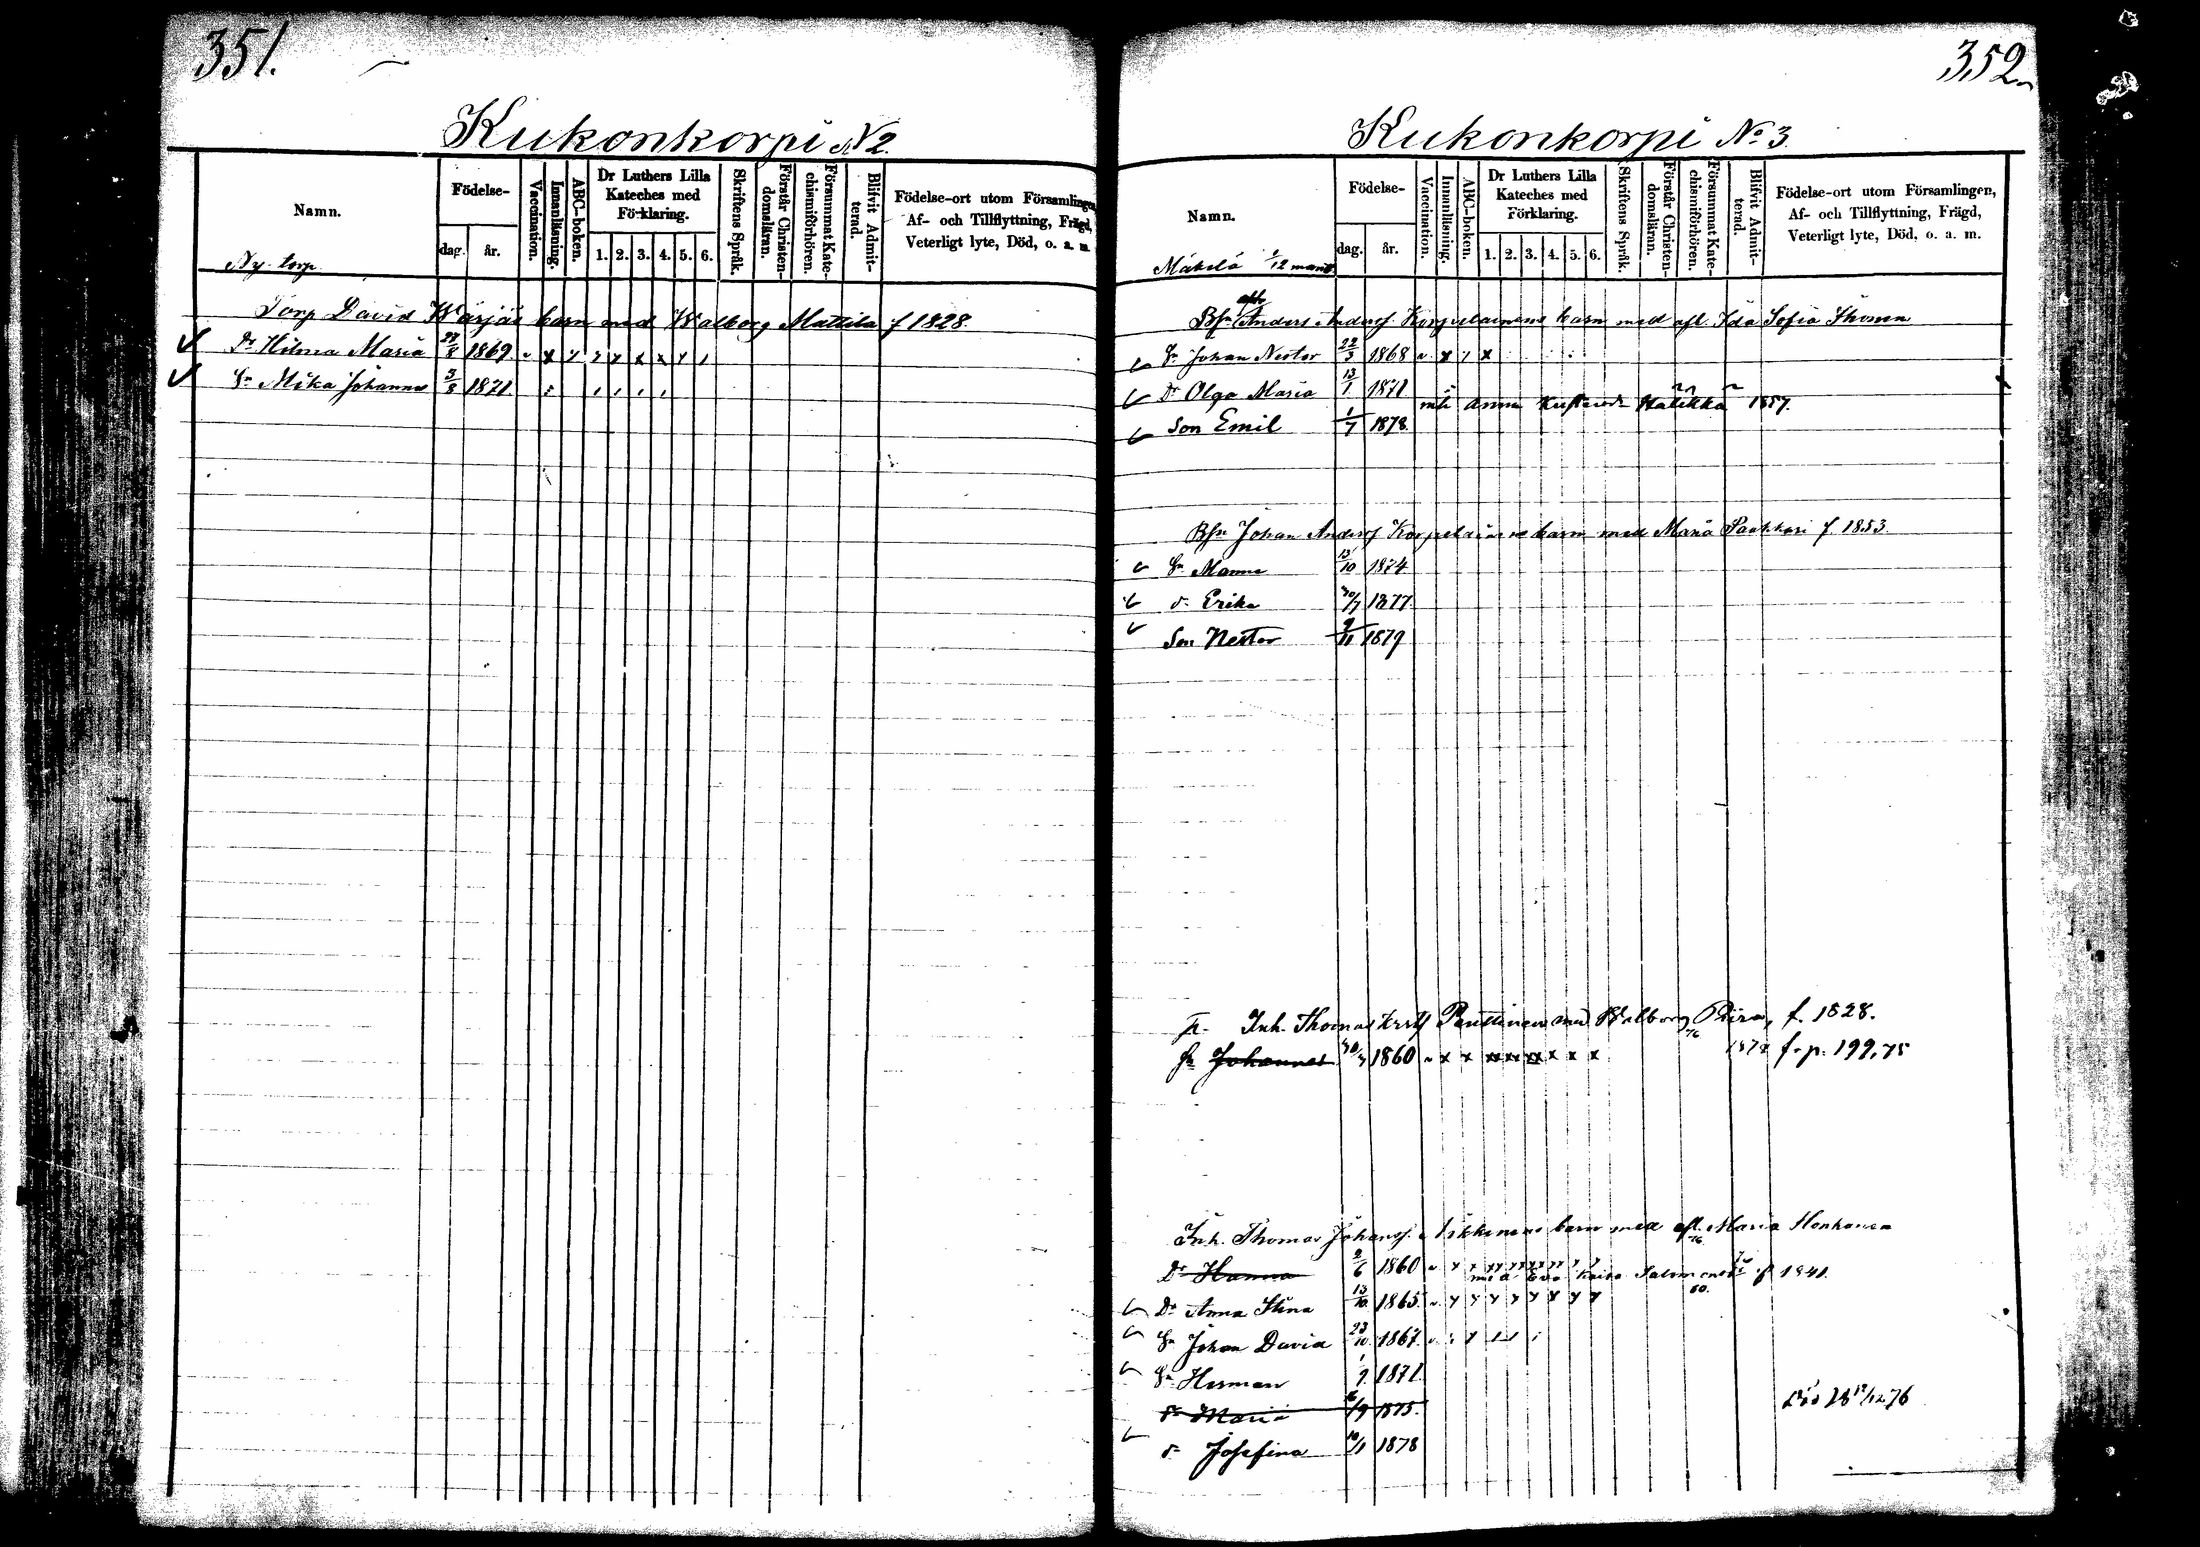 351.
Kukonkorpi N 2.
Namn.
Födelse-
dag.
år.
Vaccination.
Innanläsning.
ABC-boken.
Dr Luthers Lilla
Kateches med
Förklaring.
1. 2. 3. 4. 5. 6.
Skriftens Språk.
Förstår Christen-
domsläran.
Försummat Kate-
chismiförhören.
Blifvit Admit-
terad.
Födelse-ort utom Församlingen,
Af- och Tillflyttning, Frägd,
Veterligt lyte, Död, o. a. m.
Ny torp
Torp David Wärjäs barn med Walborg Mattila f 1828.
Dr Hilma Maria 1869
Sn Mika Johannes 3/8 1871.
352.
Kukonkorpi No 3.
Namn.
Födelse-
dag.
år.
Vaccination.
Innanläsning.
ABC-boken.
Dr Luthers Lilla
Kateches med
Förklaring.
1. 2. 3. 4. 5. 6.
Skriftens Språk.
Förstår Christen-
domsläran.
Försummat Kate-
chismiförhören.
Blifvit Admit-
terad.
Födelse-ort utom Församlingen,
Af- och Tillflyttning, Frägd,
Veterligt lyte, Död, o. a. m.
Mäkelä 1/12 mant
Bfn Anders Andersf Korpelainens barn med afl. Ida Sofia Thomen
Sn Johan Nestor 22/3 1868
Dr Olga Maria 13/1 1871
med Anna 1857.
Son Emil 1/7 1878
Bfn Johan Andersf Korpelainens barn med Maria Paakkari f 1853
Sn Manne 13/10 1874
d. Erika 30/7 1877.
Son Nestor 9/11 1879
Inh. Thomas Penttinen med Walborg Piira, f. 1828.
Sn Johannes 1860 1878 f. p. 199, 75
Inh. Thomas Johansf. Nikkinens barn med afl. Maria Honkanen
Dr Hanna 2/6 1860
med Eva Kaisa f 1841.
Dr Anna Stina 13/10 1865
Sn Johan David 23/10 1867.
Sn Herman 1871.
dr Maria 6/9 1875. Död 76
dr Josefina 10/1 1878